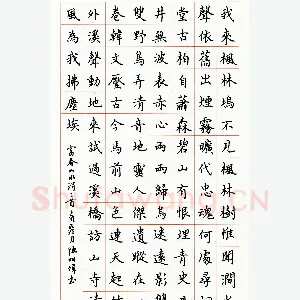 我來楓林塢不見楓林樹惟聞澗
聲依舊出煙霧曠代忠魂何處尋
堂古柏自蕭森碧山有恨埋青史
井無波表赤心雨雨歸遠影
叟野鳥弄清奇地靈人傑遺蹤在
卷韓文壓古今馬前山色連天起
外溪聲動地來試過溪橋訪山寺
風為我拂塵埃
富春山水河